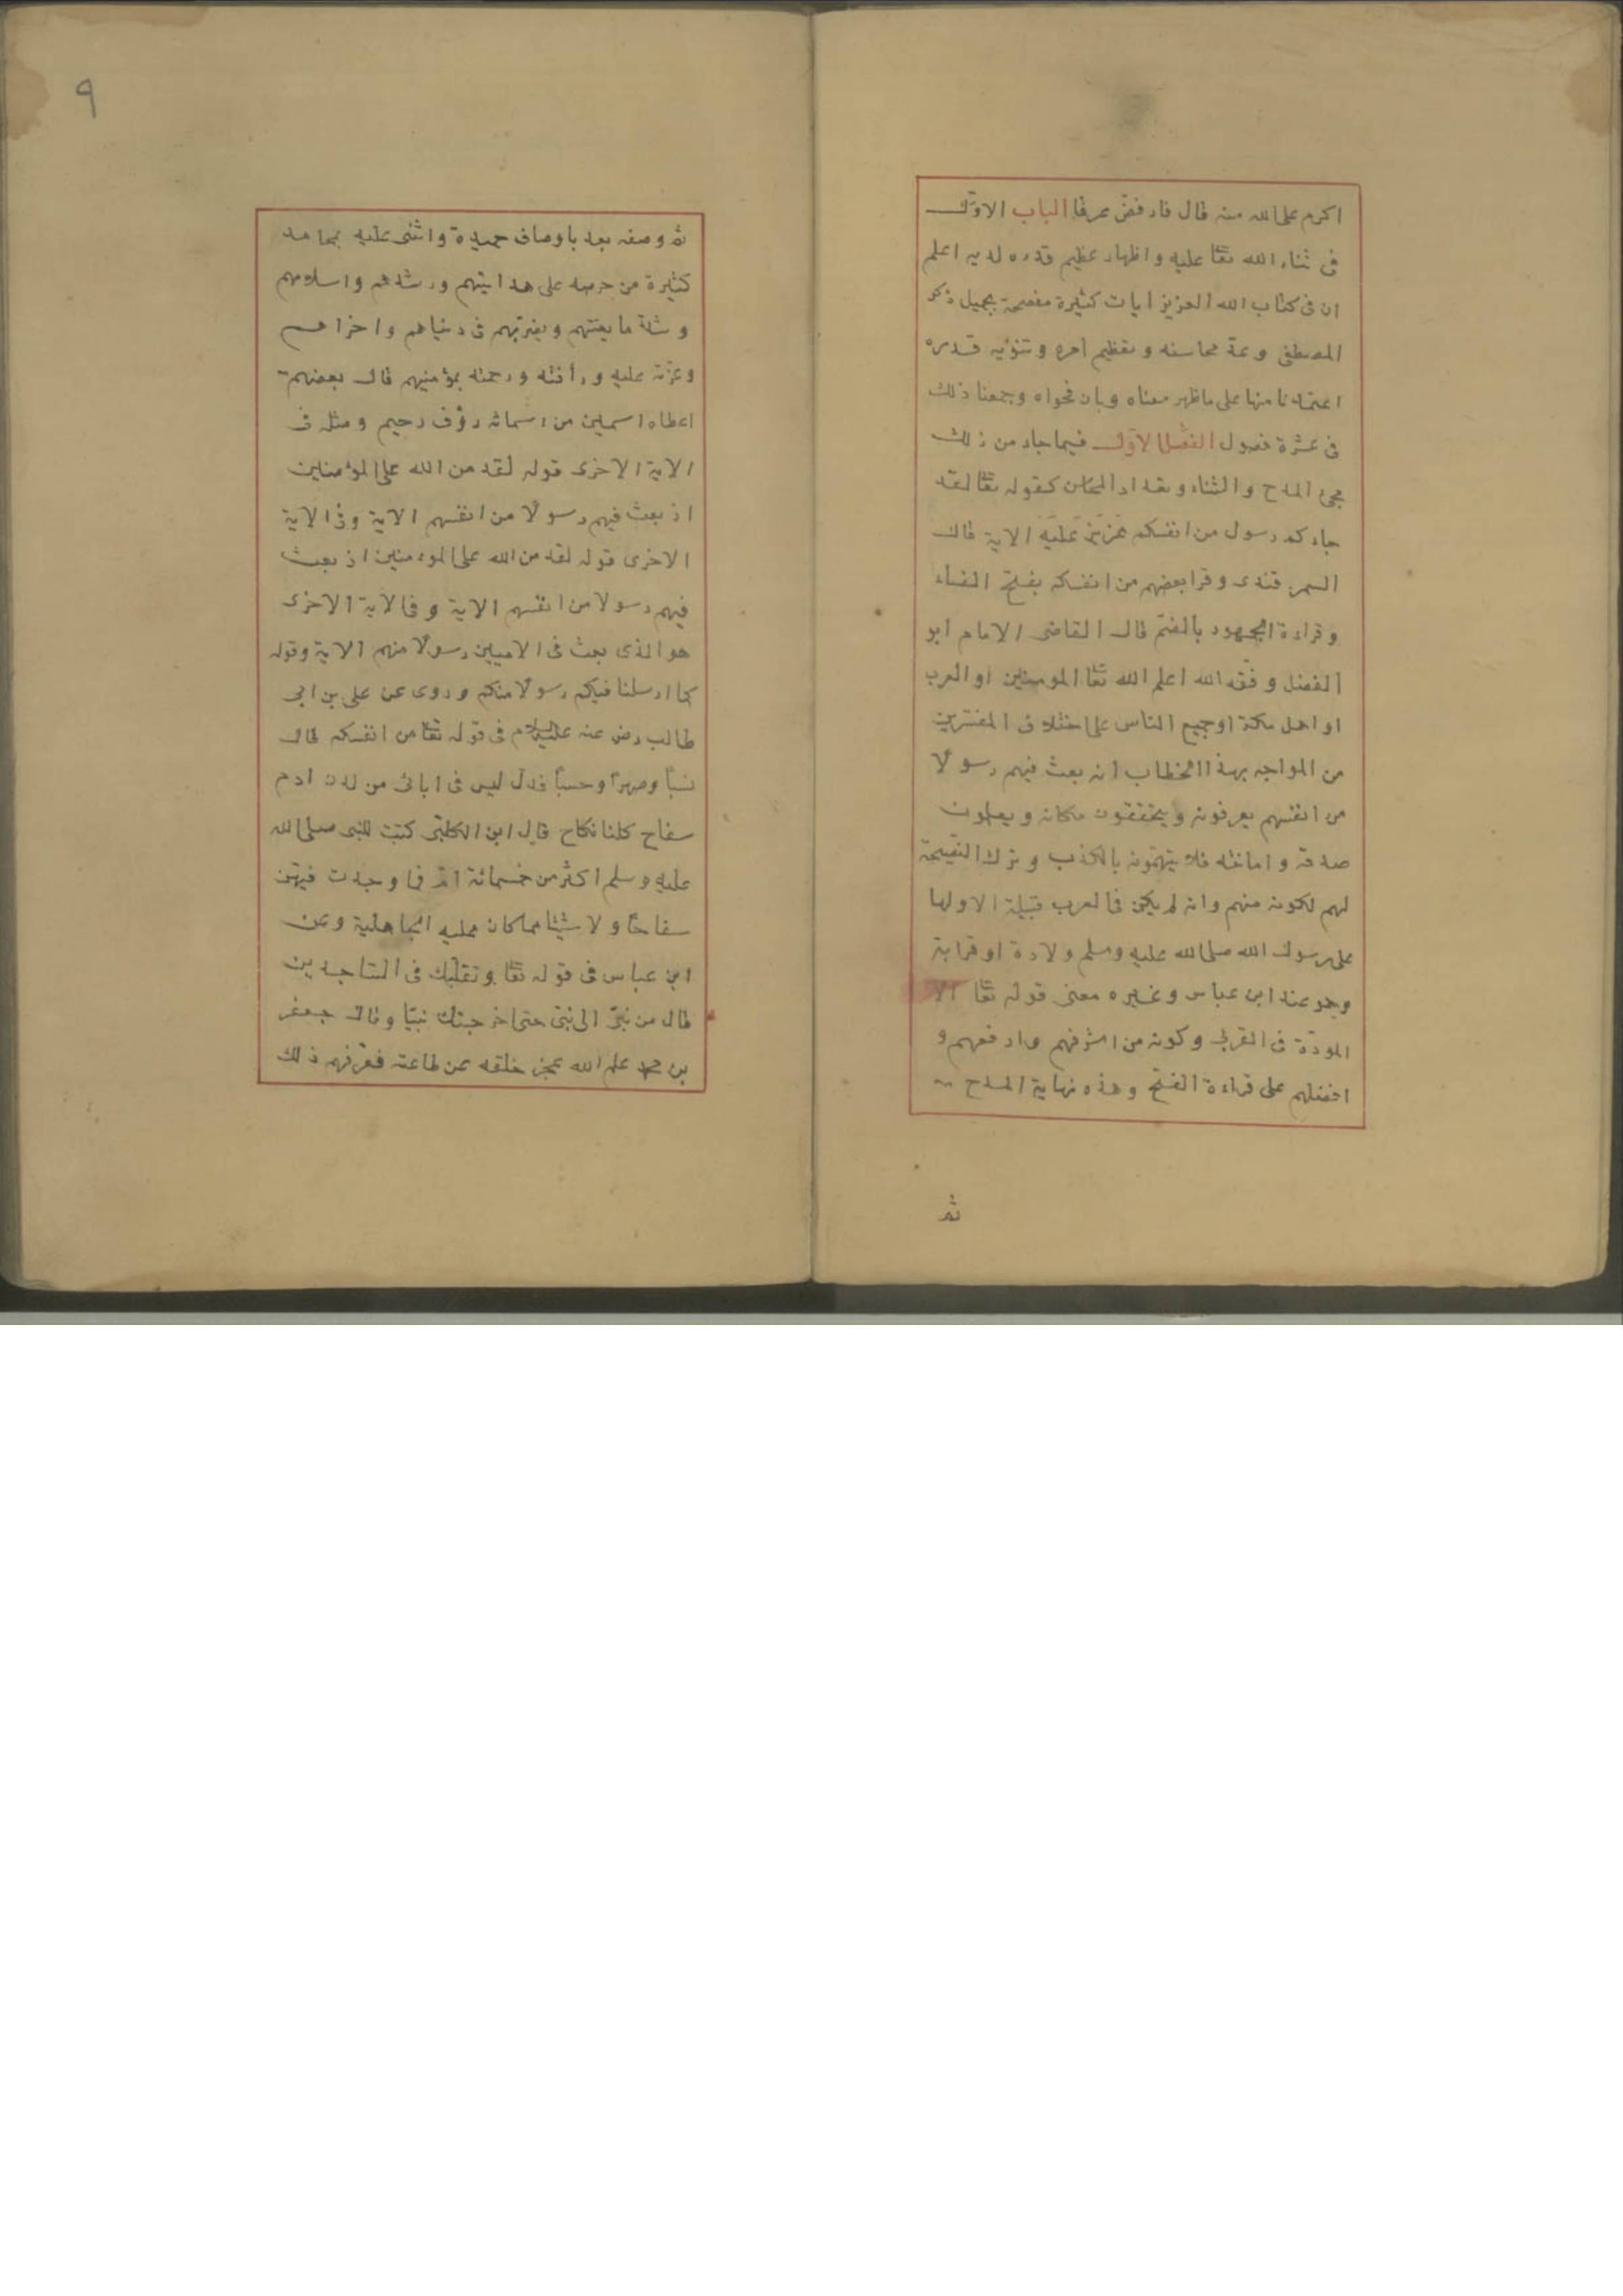 اكرم على الله منه قال فارفض عرقا الباب الاول
فى ثناء الله تعا عليه واظهار عظيم قدره لديه اعلم
ان فى كتاب الله العزيز ايات كثيرة مفصحة بجميل ذكر
المصطفى وعدة محاسنه وتعظيم امره وتنويه قدره
اعتمدنا منها على ماظهر معناه وبان فحواه وجمعنا ذلك
فى عشرة فصول الفصل الاول فيما جاء من ذلك
مجئ المدح والثناء وتعداد المحاسن كقوله تعا لقد
جاءكم رسول من انفسكم عزيز عليه الاية قال
السمرقندى وقرا بعضهم من انفسكم بفتح الفاء
وقراءة الجمهور بالضم قال القاضى الامام ابو
الفضل وفقه الله اعلم الله تعا المومنين او العرب
او اهل مكة اوجميع الناس على اختلاف المفسرين
من المواجه بهذا الخطاب انه بعث فيهم رسولا
من انفسهم يعرفونه ويتحققون مكانه ويعلمون
صدقه وامانته فلا يتهمونه بالكذب وترك النصيحة
لهم لكونه منهم وانه لم يكن فى العرب قبيلة الا ولها
على رسول الله صلى الله عليه وسلم ولادة او قرابة
وهو عند ابن عباس وغيره معنى قوله تعا الا
المودة فى القربى وكونه من اشرفهم وارفعهم و
افضلهم على قراءة الفتح وهذه نهاية المدح
ثم
٩
ثم وصفه بعد باوصاف حميدة واثنى عليه بمحامد
كثيرة من حرصه على هدايتهم ورشدهم واسلامهم
وشدة مايعنتهم ويضربهم فى دنياهم واخراهم
وعزته عليه ورأفته ورحمته بمؤمنيهم قال بعضهم
اعطاه اسمين من اسمائه رؤف رحيم ومثله فى
الاية الاخرى قوله لقد من الله على المؤمنين
اذ بعث فيهم رسولا من انفسهم الاية وفى الاية
الاخرى قوله لقد من الله على المؤمنين اذ بعث
فيهم رسولا من انفسهم الاية وفى الاية الاخرى
هو الذى بعث فى الاميين رسولا منهم الاية وقوله
كما ارسلنا فيكم رسولا منكم وروى عن على بن ابى
طالب رضى عنه عليه السلام فى قوله تعا من انفسكم قال
نسباً وصهراً وحسباً قال ليس فى ابائى من لدن ادم
سفاح كلنا نكاح قال ابن الكلبى كتبت للنبى صلى الله
عليه وسلم اكثر من خمسمائة ام فما وجدت فيهن
سفاحا ولا شيئا مماكان عليه الجاهلية وعن
ابن عباس فى قوله تعا وتقلبك فى الساجدين
قال من نبى الى نبى حتى اخرجتك نبيا وقال جعفر
بن محمد علم الله عجز خلقه عن طاعته فعرفهم ذلك